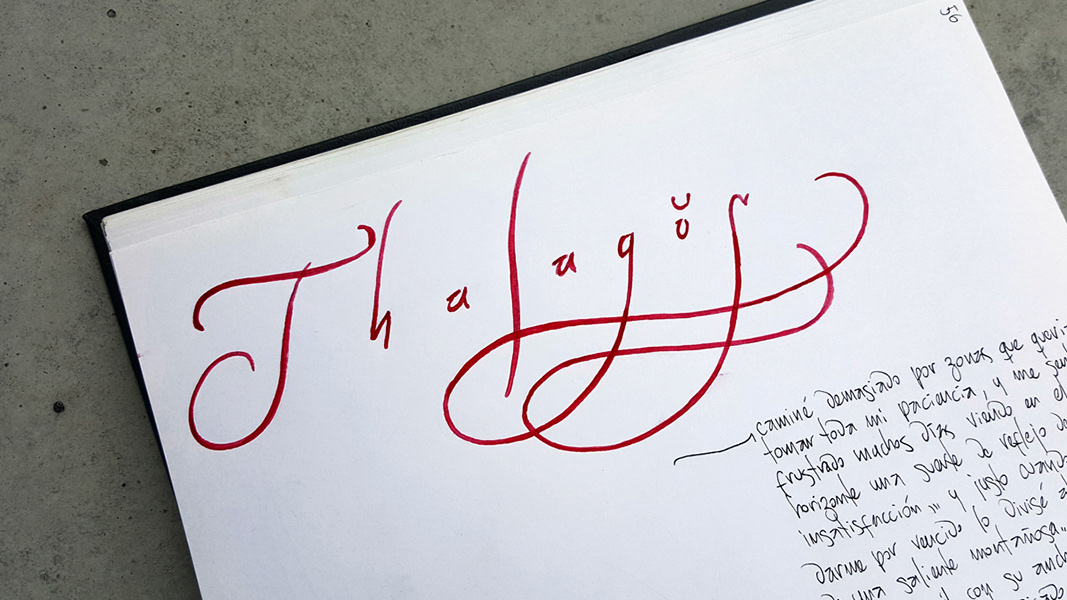 56
Thalagŏs
caminé demasiado por zonas que
tomar toda mi paciencia, y me
frustrado muchos días viendo en el
horizonte una suerte de reflejo de
insatisfacción,,, y justo cuando
darme por vencido lo divisé
una saliente montañosa
con su